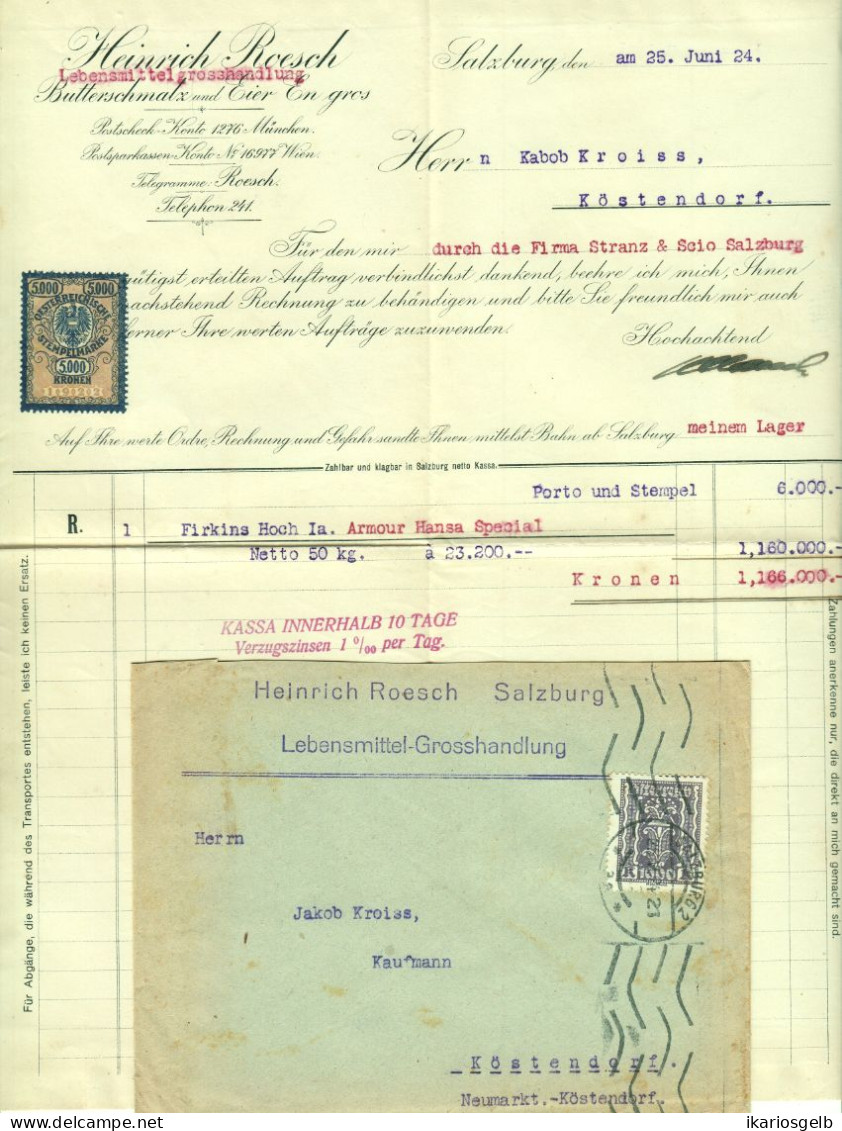 Heinrich Roesch
Lebensmittelgrosshandlung
Butterschmalz und Eier En gros
Postscheck-Konto 1276 München.
Postsparkassen-Konto No 16977 Wien.
Telegramme: Roesch.
Telephon 241.
Salzburg, den am 25. Juni 24.
Herr n Kabob Kroiss,
Köstendorf.
Für den mir durch die Firma Stranz & Scio Salzburg
gütigst erteilten Auftrag verbindlichst dankend, beehre ich mich, Ihnen
nachstehend Rechnung zu behändigen und bitte Sie freundlich mir auch
ferner Ihre werten Aufträge zuzuwenden.
Hochachtend
5.000 5.000
OESTERREICHISCHE
STEMPELMARKE
5.000
KRONEN
Auf Ihre werte Ordre, Rechnung und Gefahr sandte Ihnen mittelst Bahn ab Salzburg meinem Lager
Zahlbar und klagbar in Salzburg netto Kassa.
Porto und Stempel 6.000.-
R. 1 Firkins Hoch Ia. Armour Hansa Special
Netto 50 kg. à 23.200.-- 1,160.000.-
Kronen 1,166.000.-
KASSA INNERHALB 10 TAGE
Verzugszinsen 1 ‰ per Tag.
Für Abgänge, die während des Transportes entstehen, leiste ich keinen Ersatz.
Zahlungen anerkenne nur, die direkt an mich gemacht sind.
Heinrich Roesch Salzburg
Lebensmittel-Grosshandlung
K 1000 K
SALZBURG 2
Herrn
Jakob Kroiss,
Kaufmann
Köstendorf.
Neumarkt.-Köstendorf.
delcampe.net
ikariosgelb